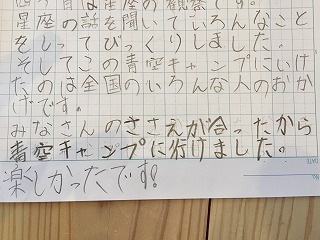 四つ目は星座の観察です。
星座の話を聞いていろんなこと
をしってびっくりしました。
そしてこの青空キャンプにいけ
たのは全国のいろんな人のおか
げです。
みなさんのささえが合ったから
青空キャンプに行けました。
楽しかったです!